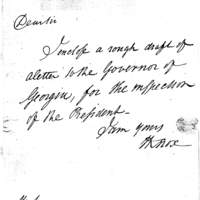 Dear Sir
I enclose a rough draft of
a letter to the Governor of
Georgia, for the inspection
of the President.
I am yours
HKnox